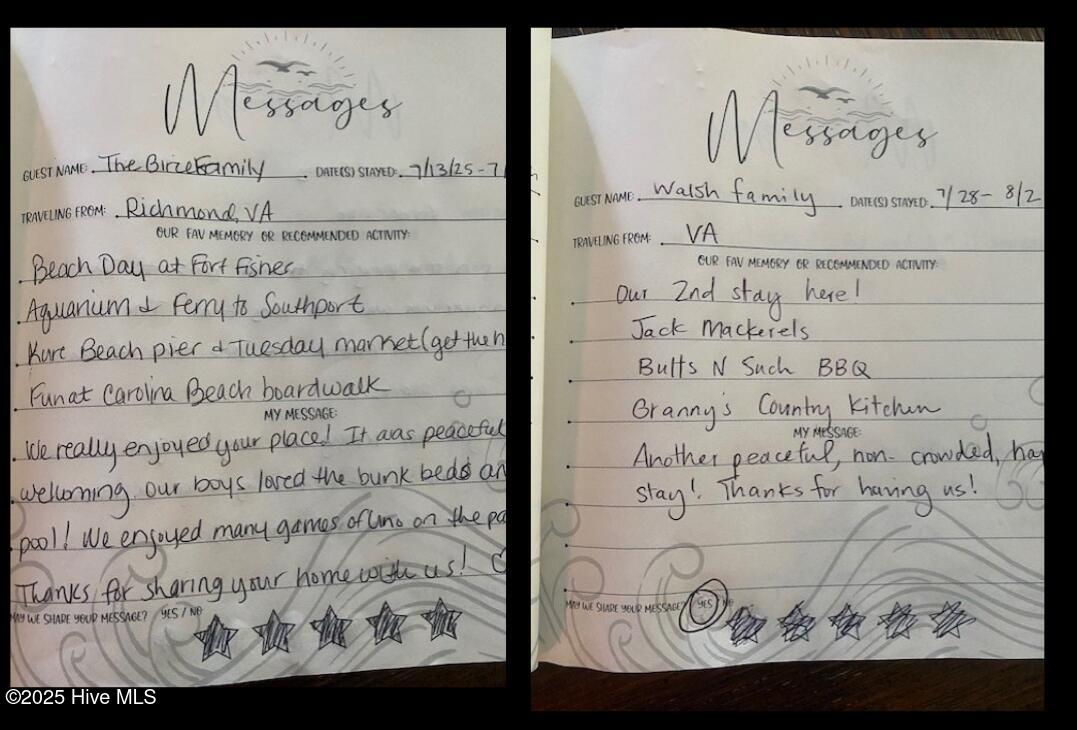 Messages
GUEST NAME: The Birce Family DATE(S) STAYED: 7/13/25 - 7
TRAVELING FROM: Richmond, VA
OUR FAV MEMORY OR RECOMMENDED ACTIVITY:
Beach Day at Fort Fisher
Aquarium & Ferry to Southport
Kure Beach pier & Tuesday market (get the h
Fun at Carolina Beach boardwalk
MY MESSAGE:
We really enjoyed your place! It was peaceful
welcoming. Our boys loved the bunk beds an
pool! We enjoyed many games of Uno on the pa
Thanks for sharing your home with us!
MAY WE SHARE YOUR MESSAGE? YES / NO
Messages
GUEST NAME: Walsh family DATE(S) STAYED: 7/28 - 8/2
TRAVELING FROM: VA
OUR FAV MEMORY OR RECOMMENDED ACTIVITY:
Our 2nd stay here!
Jack Mackerels
Butts N Such BBQ
Granny's Country Kitchen
MY MESSAGE:
Another peaceful, non-crowded, ha
stay! Thanks for having us!
MAY WE SHARE YOUR MESSAGE? YES / NO
©2025 Hive MLS